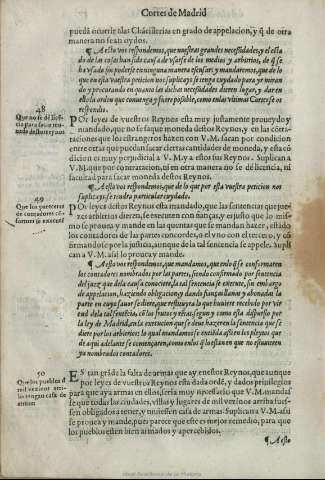 Cortes de Madrid
pueda ocurrir a las Chãcillerias en grado de apelacion, y q̃ de otra
manera no sean oydos.
¶ A esto vos respondemos, que nuestras grandes necessidades, y el esta
do de las cosas han sido causa de vsarse de los medios y arbitrios, de q̃ se
ha vsado sin poderse en ninguna manera escusar: y mandaremos, que de lo
que en esta vuestra peticion nos suplicays se tenga cuydado para yr miran
do y procurando en quanto las dichas necessidades dieren lugar, y dar en
ello la orden que conuenga y fuere possible, como en las vltimas Cortes se os
respondio.
48
Que no se dè licẽ
cia para sacar mo
neda destos reynos
POr leyes de vuestros Reynos esta muy justamente proueydo y
mandado, que no se saque moneda destos Reynos, y en las cõtra-
taciones que los estrangeros hazen con V.M. sacan por condicion
entre otras que puedan sacar ciertas cantidades de moneda, y esta cõ
dicion es muy perjudicial a V.M. y a estos sus Reynos. Suplican a
V.M. que por contratacion, ni en otra manera no se dè licencia, ni
facultad para sacar moneda destos Reynos.
¶ A esto vos respondemos, que de lo que por esta vuestra peticion nos
suplicays, se tendra particular cuydado.
49
Que los pareceres
de contadores cõ
formes se executẽ
POr leyes destos Reynos esta mandado, que las sentencias que jue-
zes arbitros dieren, se executen con fianças, y es justo que lo mis-
mo se prouea y mande en las quentas que se mandan hazer, estãdo
los contadores de las partes concordes, o el vno con el tercero, y cõ
firmandose por la justicia, aunque de la tal sentencia se apele. Supli
can a V.M. assi lo prouea y mande.
¶ A esto vos respondemos, que mandamos, que en lo q̃ se conformaren
los contadores nombrados por las partes, siendo confirmado por sentencia
del juez que dela causa conociere, la tal sentencia se execute, sin embargo
de apelacion, haziendo obligacion y dando fianças llanas y abonadas la
parte en cuyo fauor se diere, que restituyra lo que huuiere recebido por vir
tud dela tal sentẽcia, cõ los frutos y rẽtas, segun y como esta dispuesto por
la ley de Madrid, en la execucion que se deue hazer en la sentencia que se
diere por los arbitros: lo qual mandamos se entienda assi en los pleytos que
de aqui adelante se començaren, como en los q̃ lo estan en que no estuuieren
ya nombrados contadores.
50
Que los pueblos d̃
mil vezinos arri-
ba tengan casa de
armas
ES tan grãde la falta de armas que ay en estos Reynos, que aunque
por leyes de vuestros Reynos esta dada ordẽ, y dados priuilegios
para que aya armas en ellos, seria muy necessario que V.M. mandas-
se que todas las ciudades, villas y lugares de mil vezinos arriba fues-
sen obligados a tener, y tuuiessen casa de armas: Suplican a V.M. assi
se prouea y mande, pues parece que este es mejor remedio, para que
los pueblos esten bien armados y apercebidos.
¶ A esto